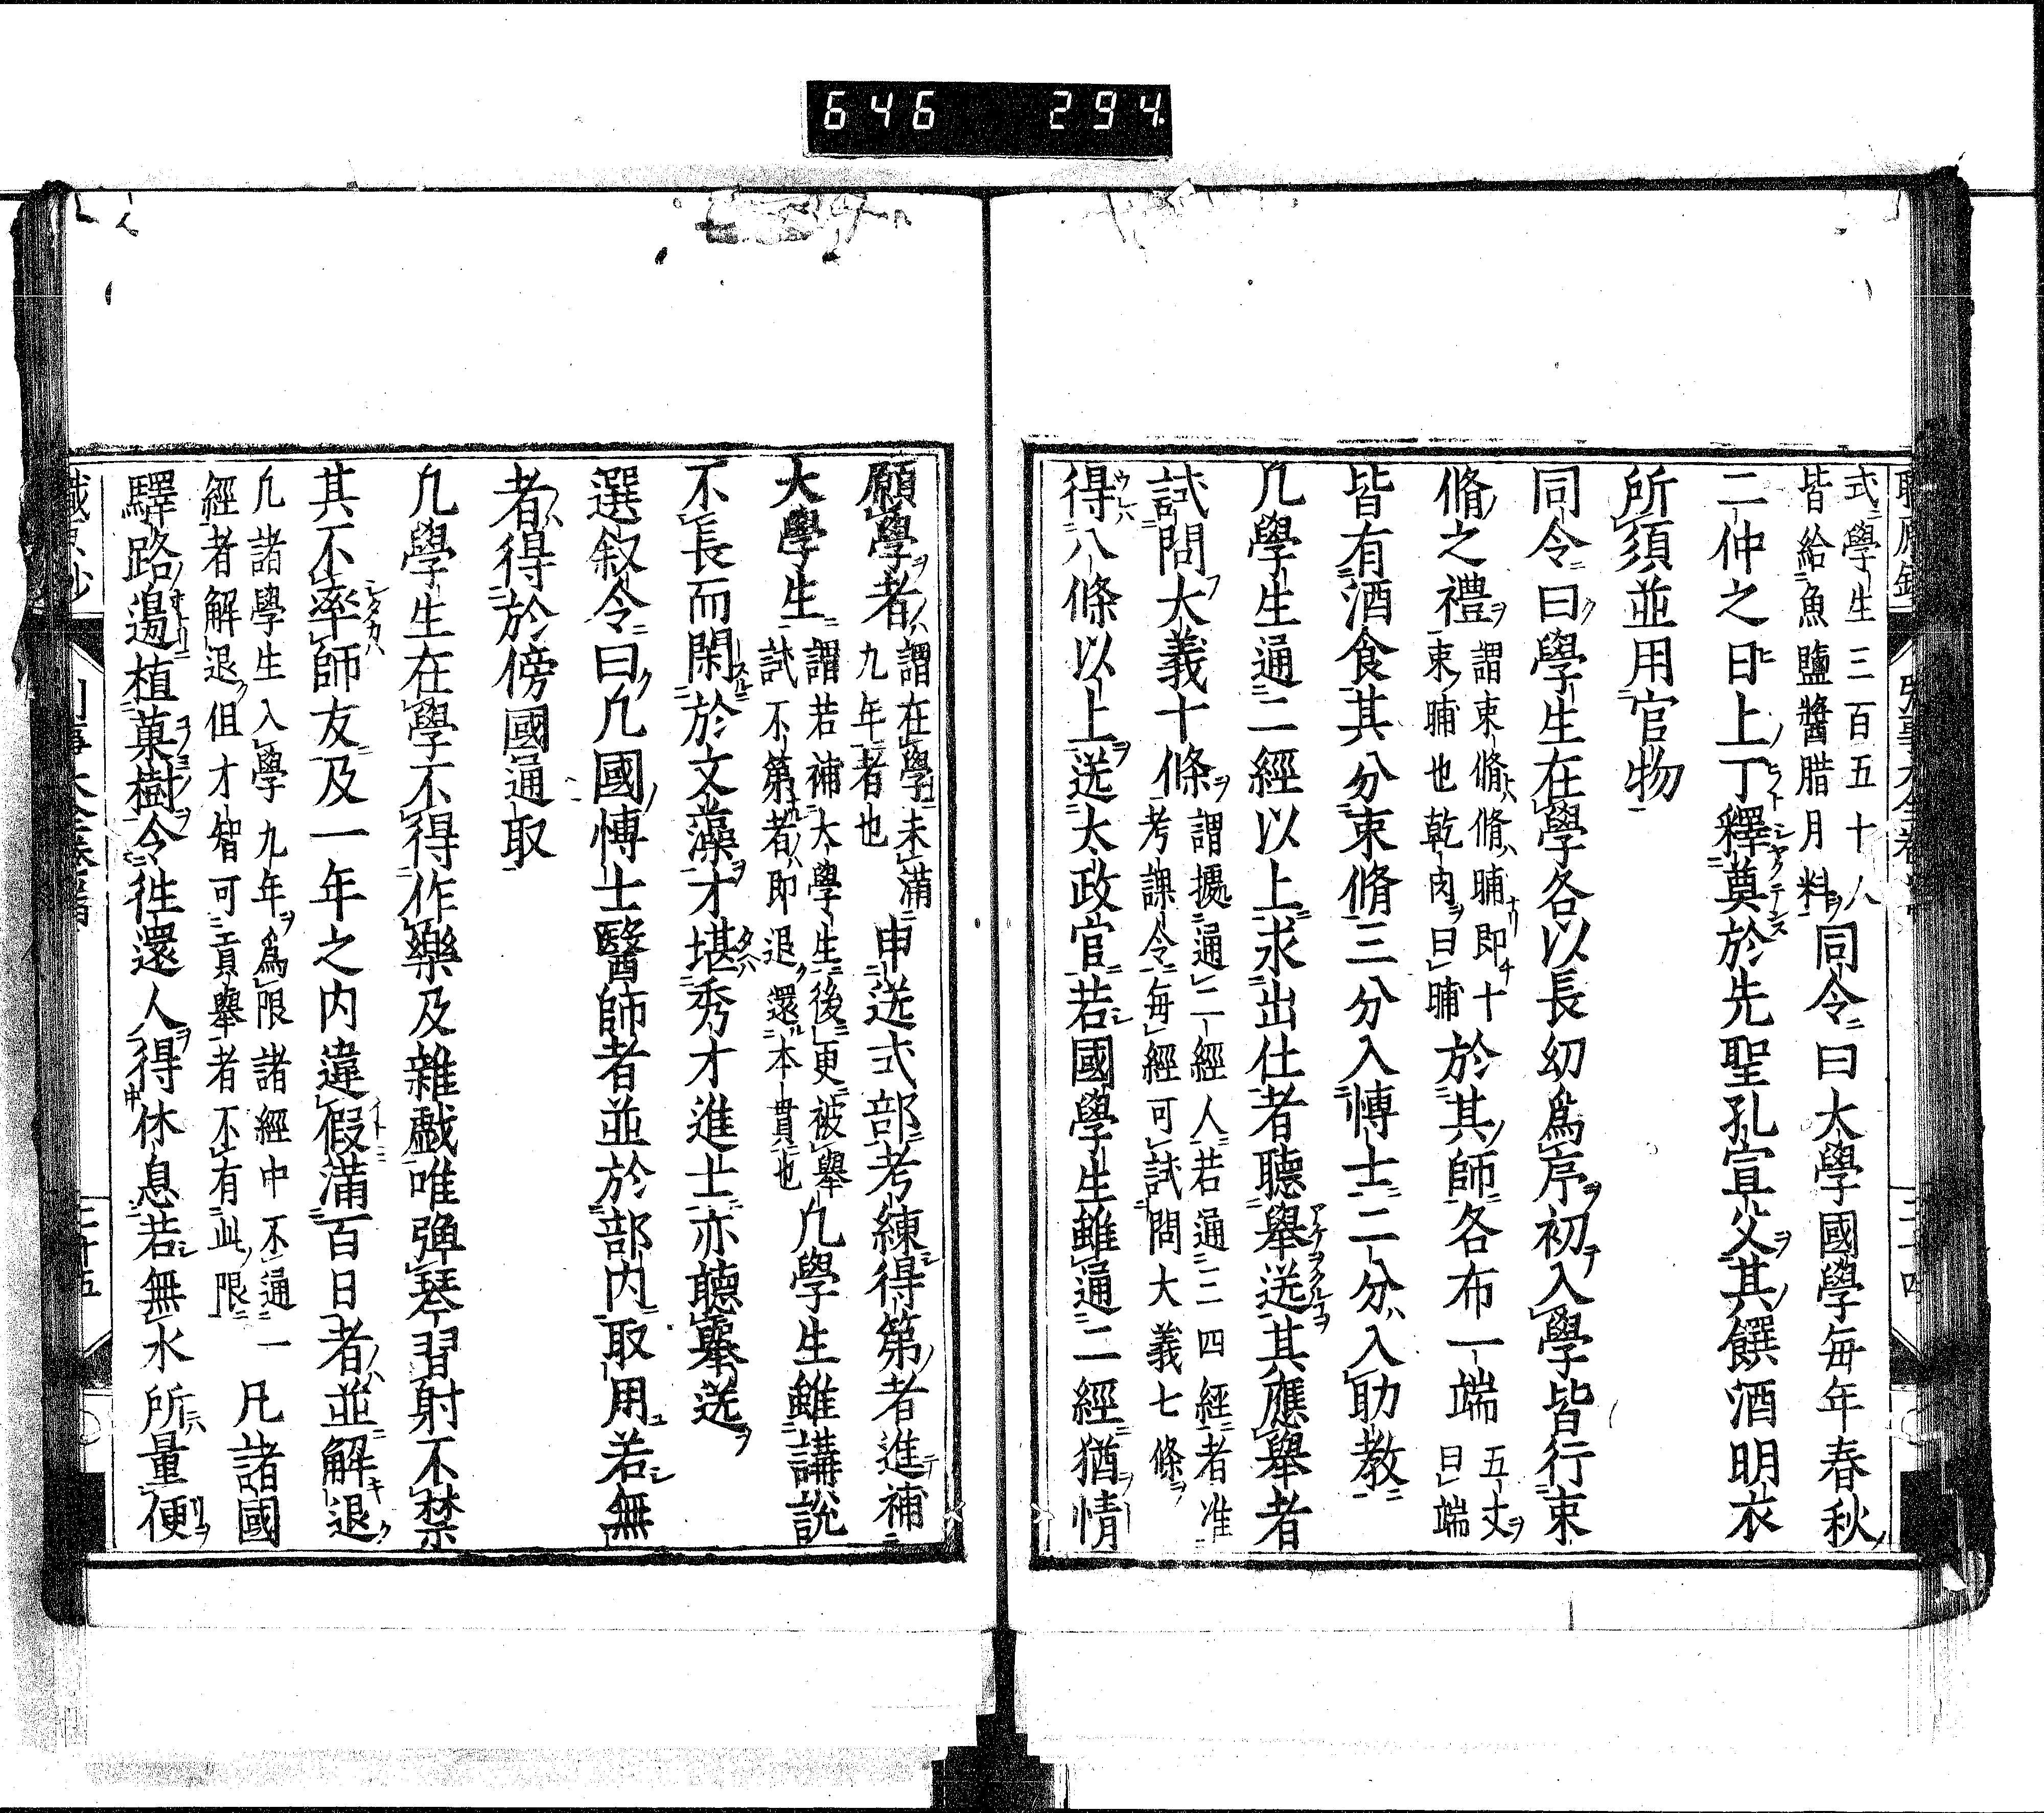 646 294
式學生三百五十人
皆給魚鹽醬腊月料同令曰大學國學每年春秋
二仲之日上丁釋奠於先聖孔宣父其饌酒明衣
所須並用官物
同令曰學生在學各以長幼爲序初入學皆行束
脩之禮謂束脩脩脯即十
束脯也乾肉曰脯於其師各布一端五丈
曰端
皆有酒食其分束脩三分入博士二分入助教
凡學生通二經以上求出仕者聽舉送其應舉者
試問大義十條謂擬通二經人若通三四經者准
考課令每經可試問大義七條
得八條以上送太政官若國學生雖通二經猶情
願學者謂在學未滿
九年者也申送式部考練得第者進補
大學生謂若補大學生後更被舉
試不第者即退還本貫也凡學生雖講說
不長而閑於文藻才堪秀才進士亦聽舉送
選叙令曰凡國博士醫師者並於部内取用若無
者得於傍國通取
凡學生在學不得作樂及雜戲唯彈琴習射不禁
其不率師友及一年之内違假滿百日者並解退
凡諸學生入學九年爲限諸經中不通一
經者解退但才智可貢舉者不有此限凡諸國
驛路邉植菓樹令徃還人得休息若無水所量便